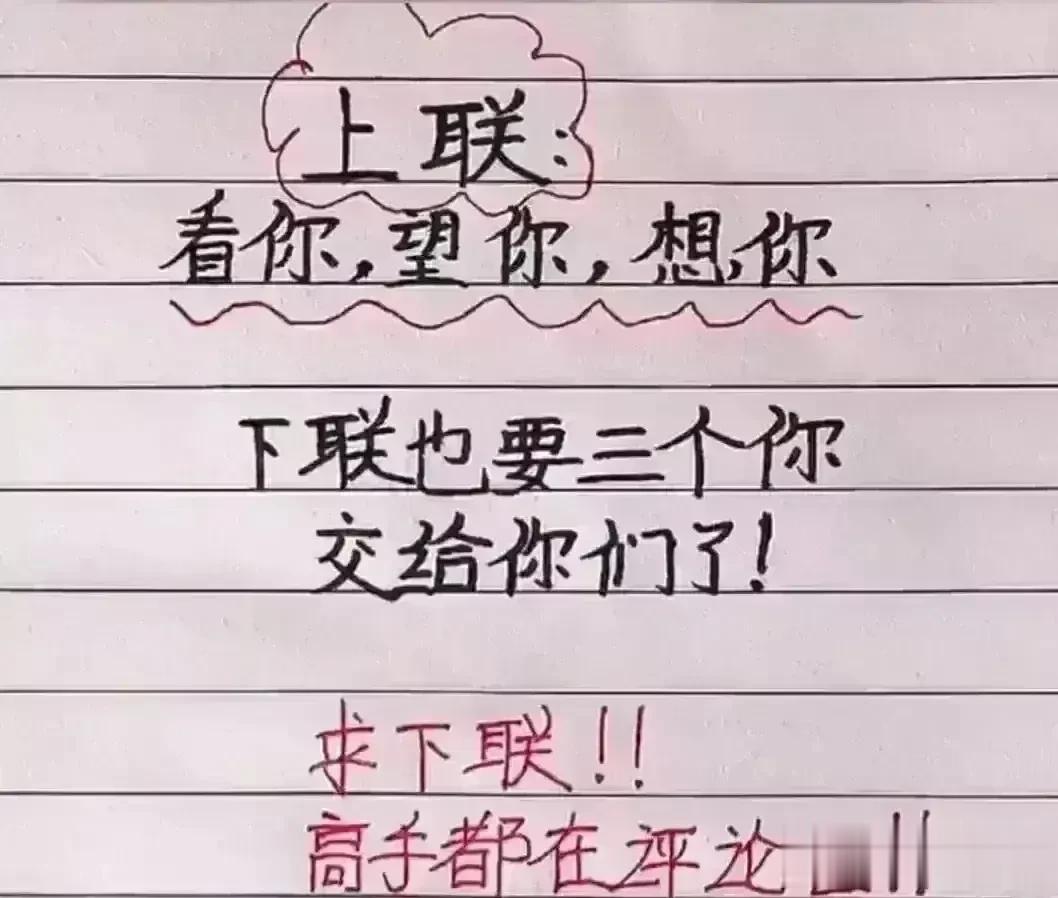 上联:
看你,望你,想你
下联也要三个你
交给你们了!
求下联!!
高手都在评论